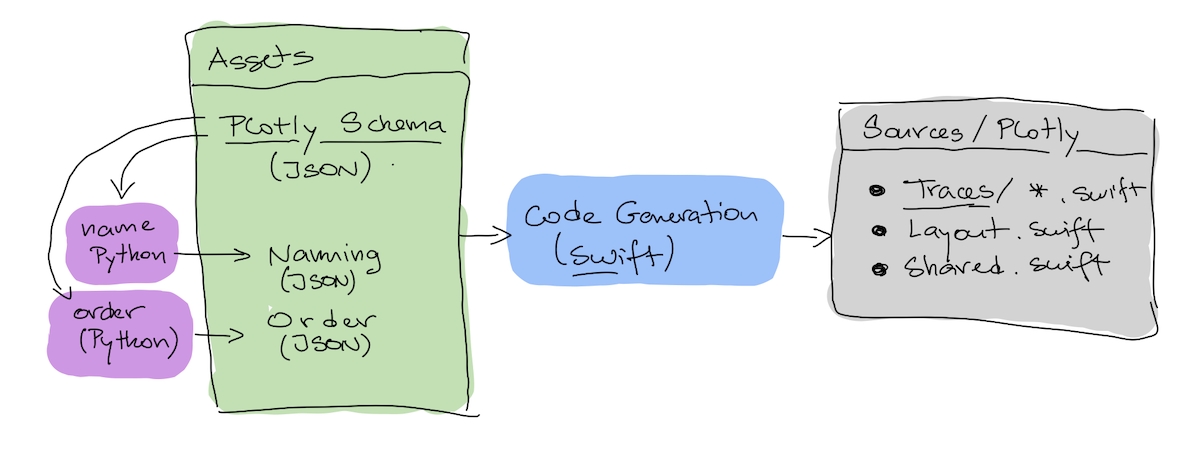 Assets
Plotly Schema
(JSON)
name
Python
Naming
(JSON)
order
(Python)
Order
(JSON)
Code Generation
(Swift)
Sources / Plotly
Traces / * .swift
Layout.swift
Shared.swift